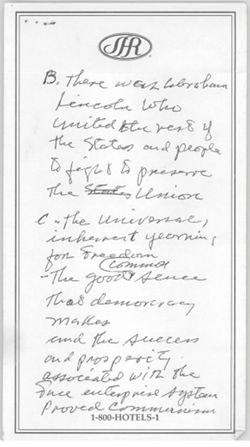 B. There was Abraham
Lincoln Who
united the rest of
the States and people
to fight to preserve
the States Union
C - the Universal,
inherent yearning
for Freedom
Common
- The good sence
that democracy
makes
and the success
and prosperity
associated with the
free enterprise system
Proved Communism
1-800-HOTELS-1